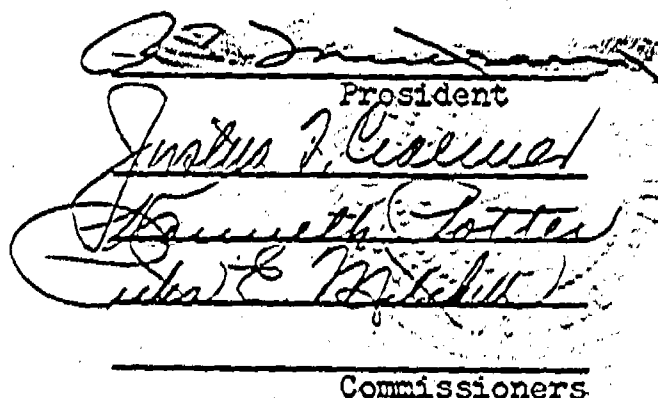 President
Justus F. Craemer
Kenneth Potter
E. Mitchell
Commissioners